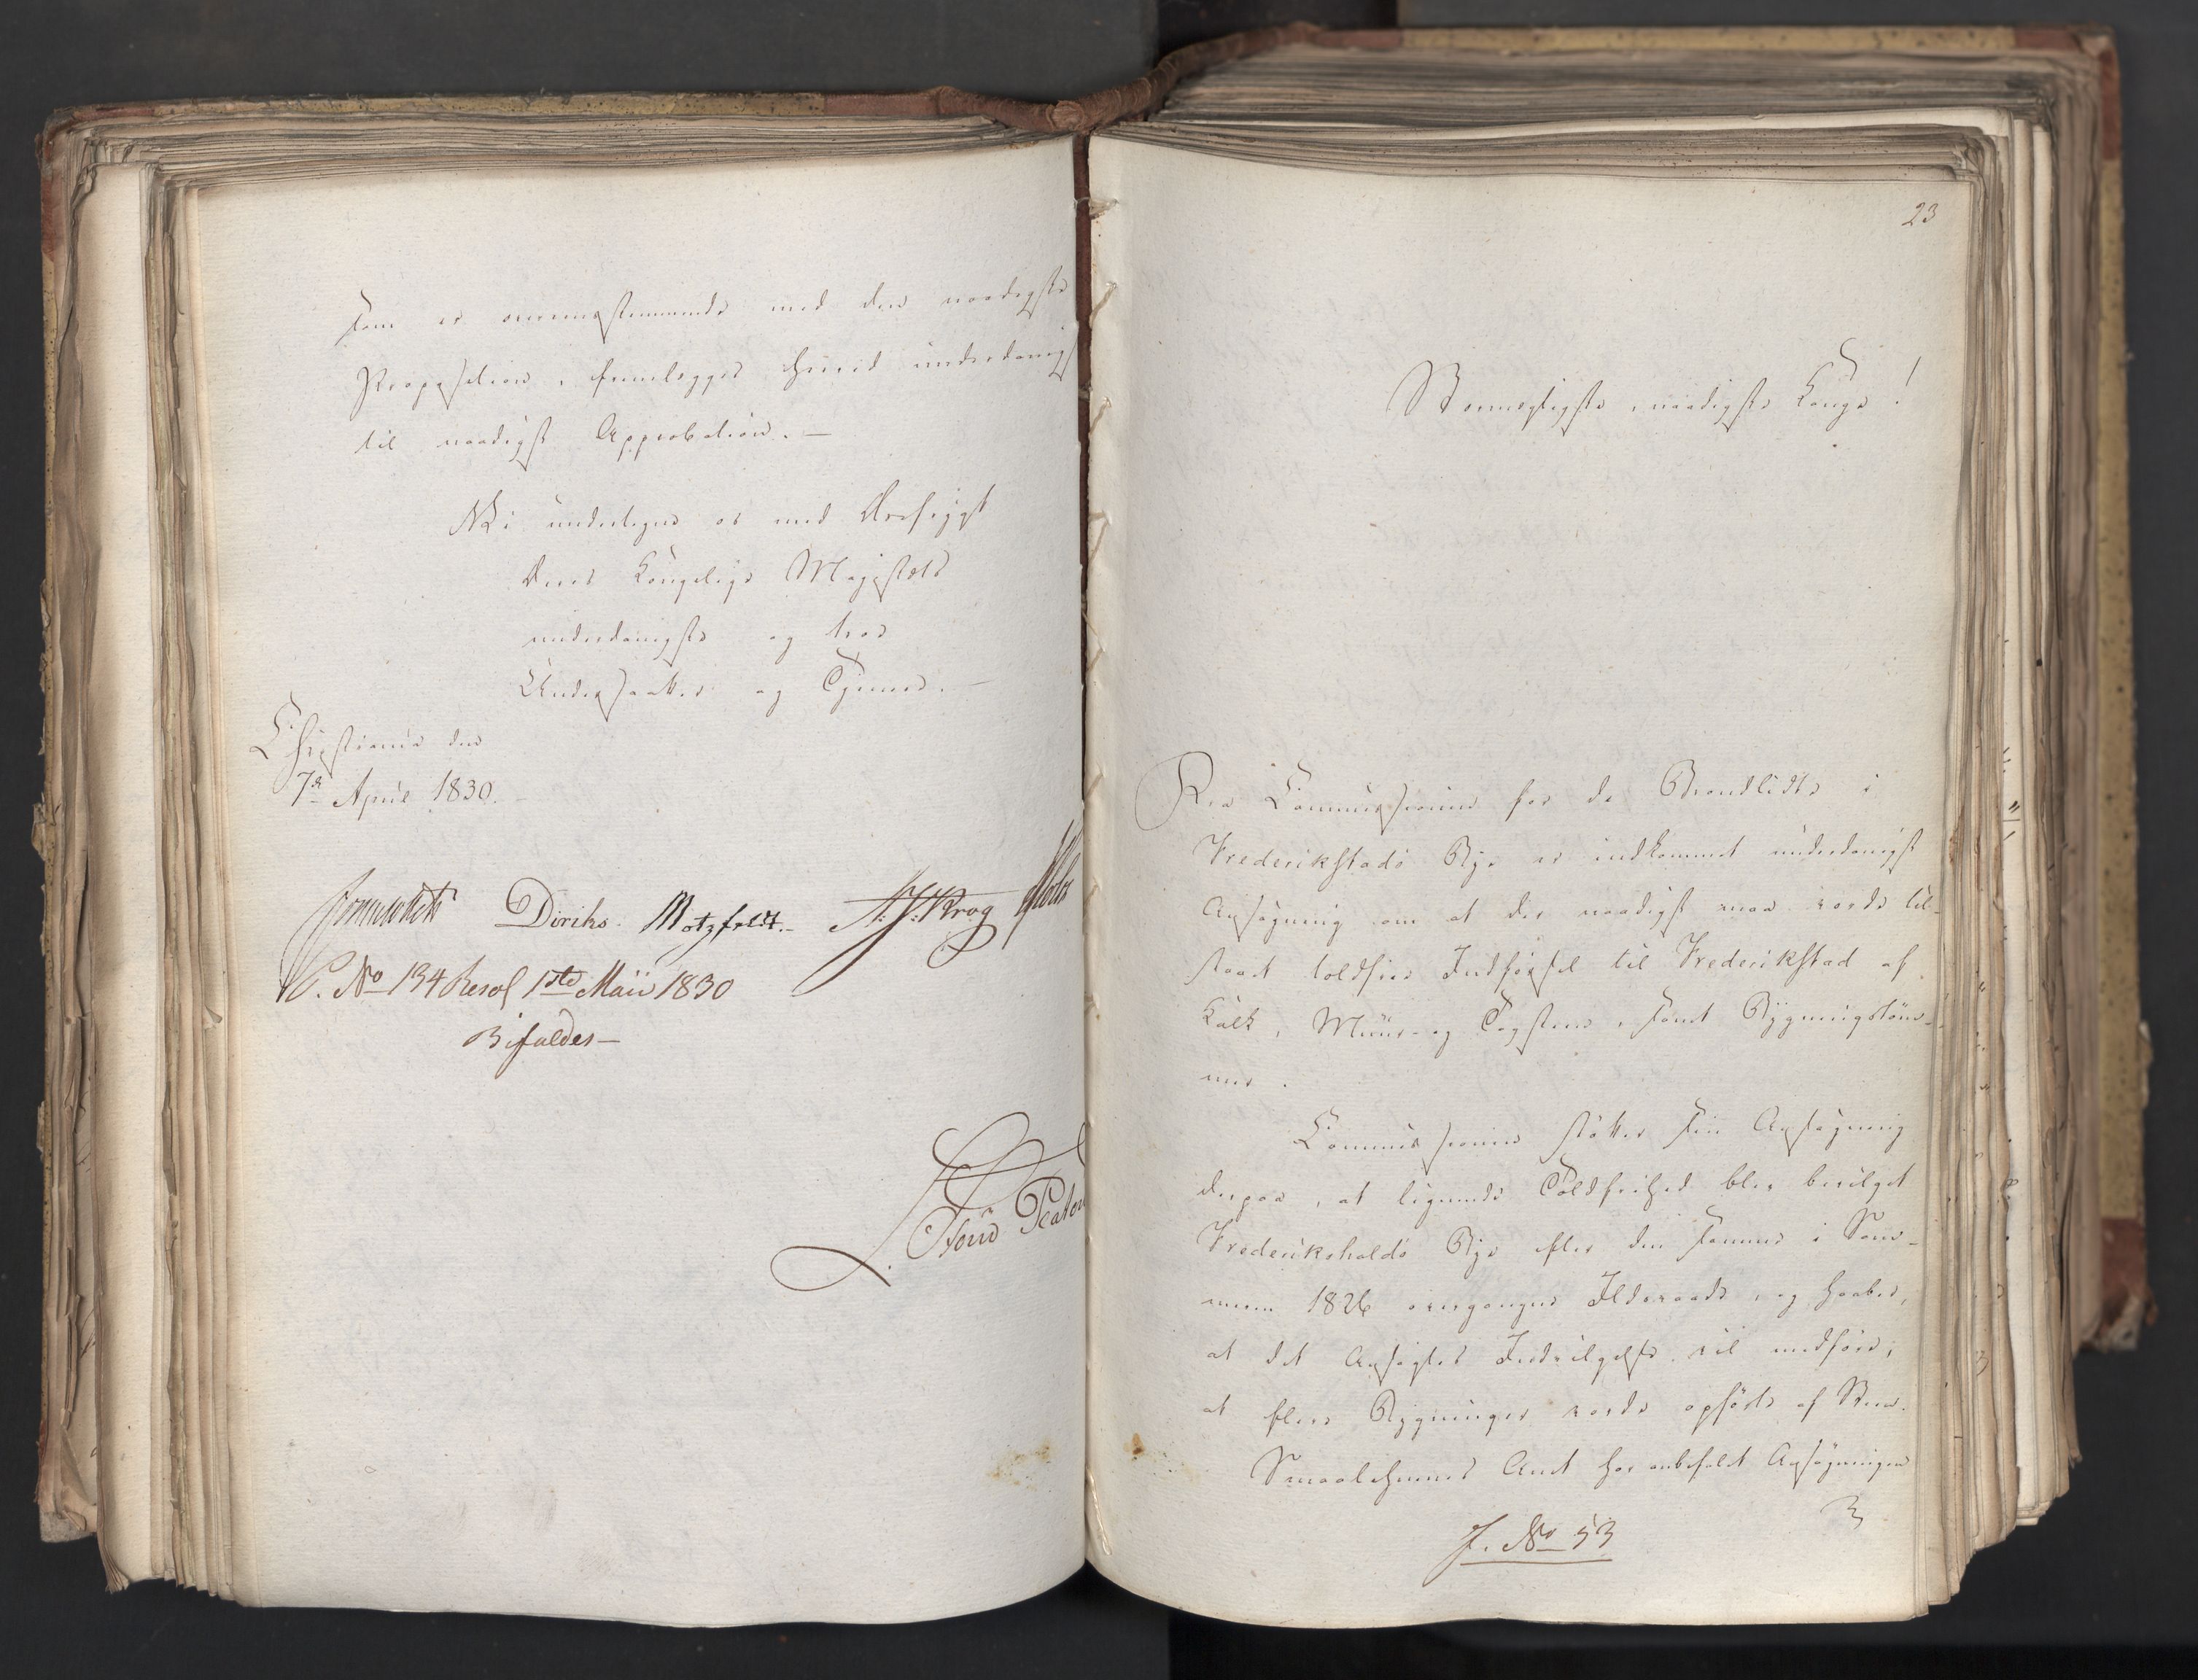 som er overensstemmende med den naadigste
Proposition, fremlægges herved underdanigst
til naadigst Approbation. —
Vi undertegne os med Ærefrygt
Deres Kongelige Majestæts
underdanigste og troe
Undersaatter og Tjenere. —
Christiania den
7de April 1830.
Diriks. Motzfeldt. Krog
No 134 Resol 1ste Maii 1830
Bifaldes —
23
Stormægtigste, naadigste Konge!
Fra Commissionen for de Brandlidte i
Frederikstads Bye er indkommet underdanigst
Ansøgning om at der naadigst maa vorde til-
staaet toldfrie Indførsel til Frederikstad af
Kalk, Muur- og Tagsteen, samt Bygningstøm-
mer.
Commissionen støtter sin Ansøgning
derpaa, at lignende Toldfrihed blev bevilget
Frederikshalds Bye efter den sammes i Som-
meren 1826 overgangne Ildsvaade, og haaber,
at det Ansøgtes Indvilgelse vil medføre,
at flere Bygninger vorde opførte af Steen.
Smaalehnenes Amt har anbefalet Ansøgningen
J. No 53